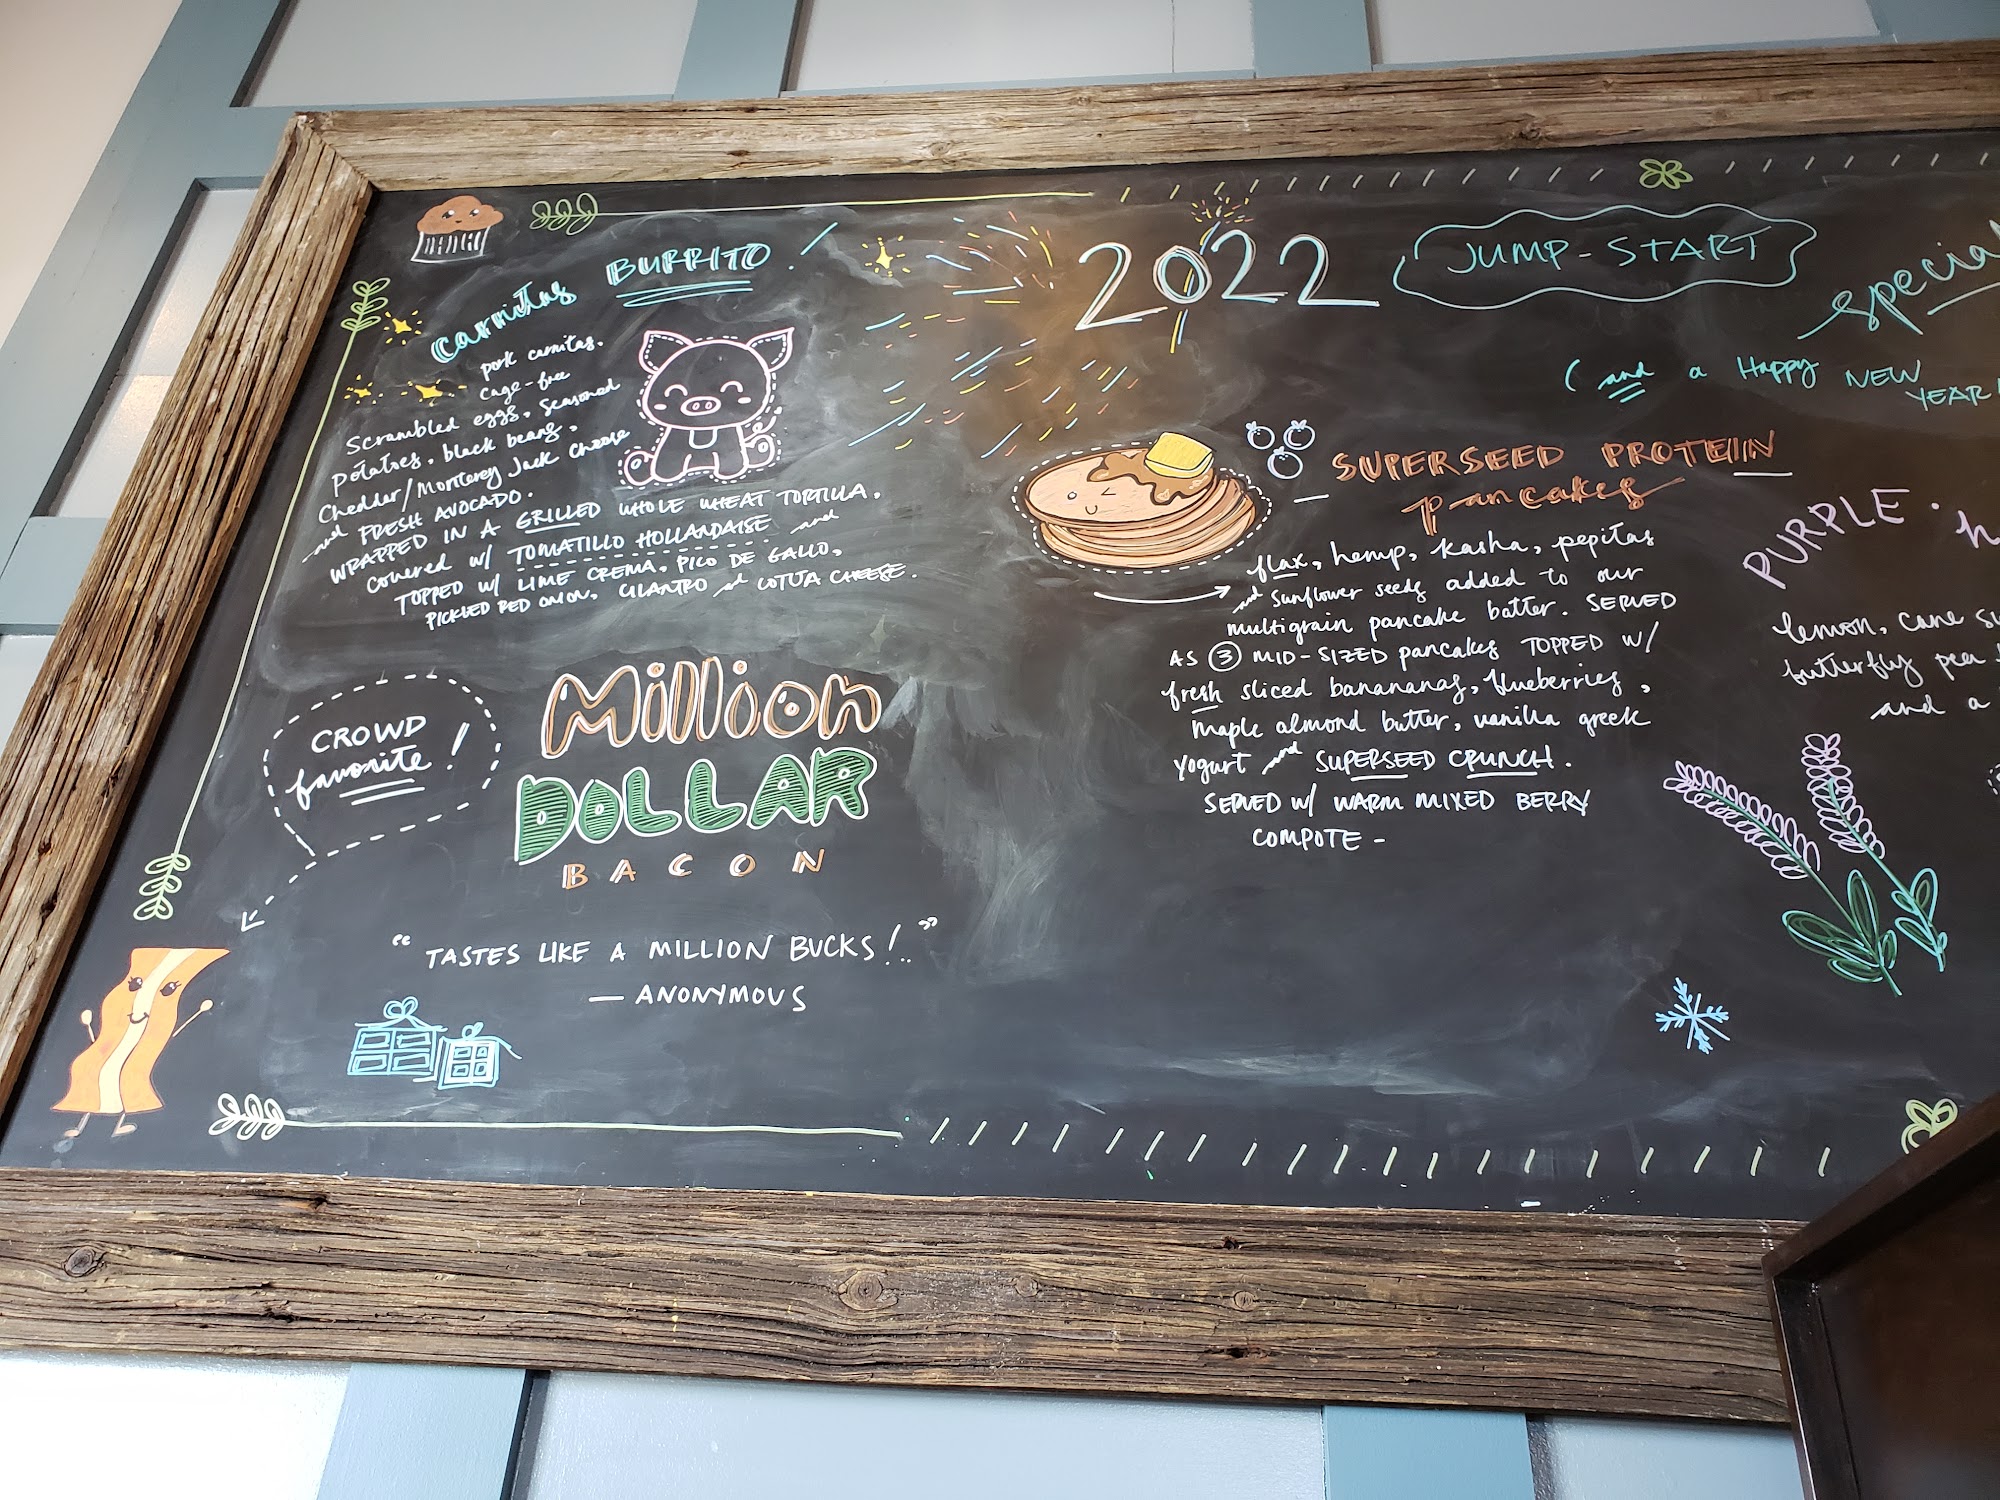 carnitas BURRITO!
pork carnitas,
cage-free
scrambled eggs, seasoned
potatoes, black beans,
cheddar/Monterey Jack cheese
and FRESH AVOCADO.
WRAPPED IN A GRILLED WHOLE WHEAT TORTILLA,
covered w/ TOMATILLO HOLLANDAISE and
TOPPED W/ LIME CREMA, PICO DE GALLO,
PICKLED RED ONION, CILANTRO and COTIJA CHEESE.
CROWD
favorite!
Million
DOLLAR
BACON
"TASTES LIKE A MILLION BUCKS!.."
— ANONYMOUS
2022 JUMP-START
special
(and a Happy NEW
YEAR!
— SUPERSEED PROTEIIN
pancakes
flax, hemp, kasha, pepitas
and sunflower seeds added to our
multigrain pancake batter. SERVED
AS 3 MID-SIZED pancakes TOPPED W/
fresh sliced banananas, blueberries,
maple almond butter, vanilla greek
yogurt and SUPERSEED CRUNCH.
SERVED W/ WARM MIXED BERRY
COMPOTE -
PURPLE
lemon, cane
butterfly pea
and a